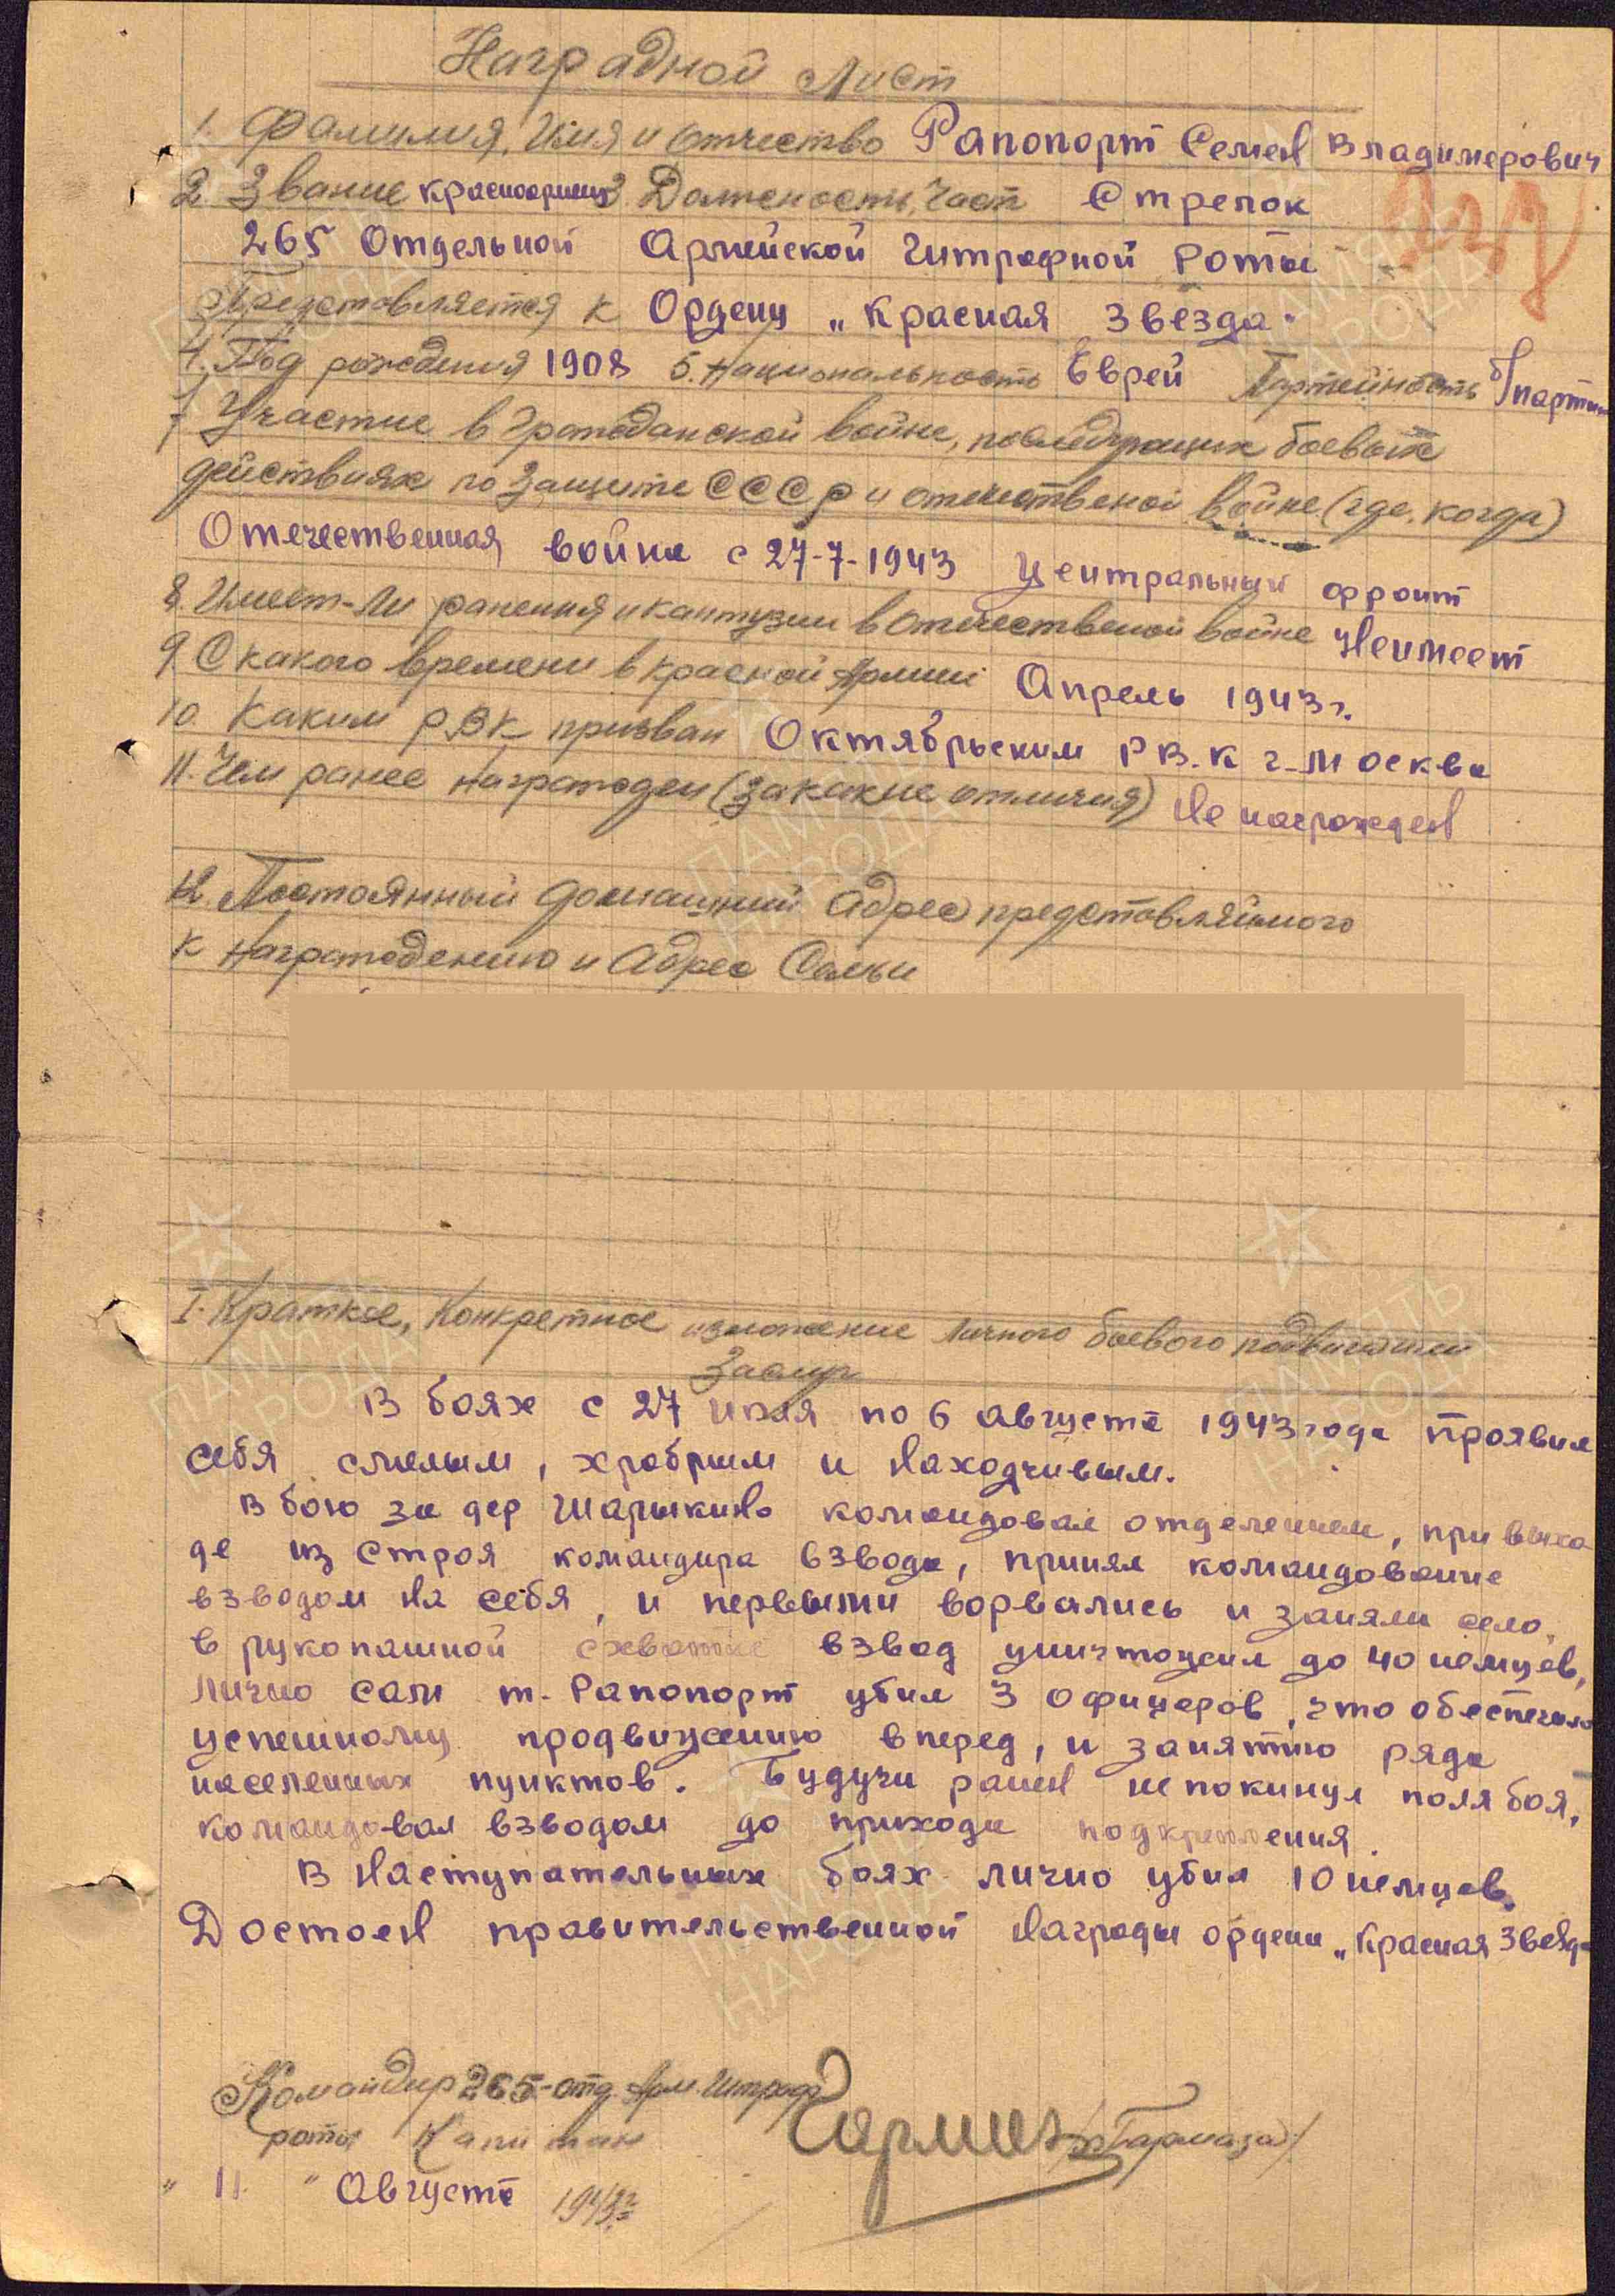 Наградной Лист
1. Фамилия, Имя и отчество Рапопорт Семен Владимерович
2. Звание красноармеец 3. Должность, част Стрелок
265 Отдельной Армейской Штрафной Роты
Представляется к Ордену „Красная Звезда"
4. Год рождения 1908 5. Национальность Еврей Партейность б/парт
7. Участие в Гражданской войне, последующих боевых
действиях по защите СССР и отечественой войне (где, когда)
Отечественная война с 27-7-1943 Центральный фронт
8. Имеет-ли ранения и кантузии в отечественой войне Неимеет
9. С какого времени в красной Армии Апрель 1943 г.
10. Каким РВК призван Октябрьским РВ.К г. Москва
11. Чем ранее награжден (за какие отличия) Не награжден
12. Постоянный домашний Адрес представляймого
к награждению и Адрес Семьи
I. Краткое, Конкретное изложение личного боевого подвига или
Заслуг
В боях с 27 июля по 6 августа 1943 года проявил
себя смелым, храбрым и находчивым.
В бою за дер Шарыкино командовал отделением, при выхо
де из строя командира взвода, принял командование
взводом на себя, и первыми ворвались и заняли село,
в рукопашной схватке взвод уничтожил до 40 немцев,
лично сам т. Рапопорт убил 3 офицеров, что обеспечило
успешному продвижению вперед, и занятию ряда
населенных пунктов. Будучи ранен непокинул поля боя,
командовал взводом до прихода подкрепления.
В Наступательных боях лично убил 10 немцев.
Достоен правительственной Награды ордена „Красная Звезда
Командир 265-отд. Арм. Штраф
роты Капитан /Гармаза/
" 11 " Августа 1943 г.
ПАМЯТЬ
НАРОДА